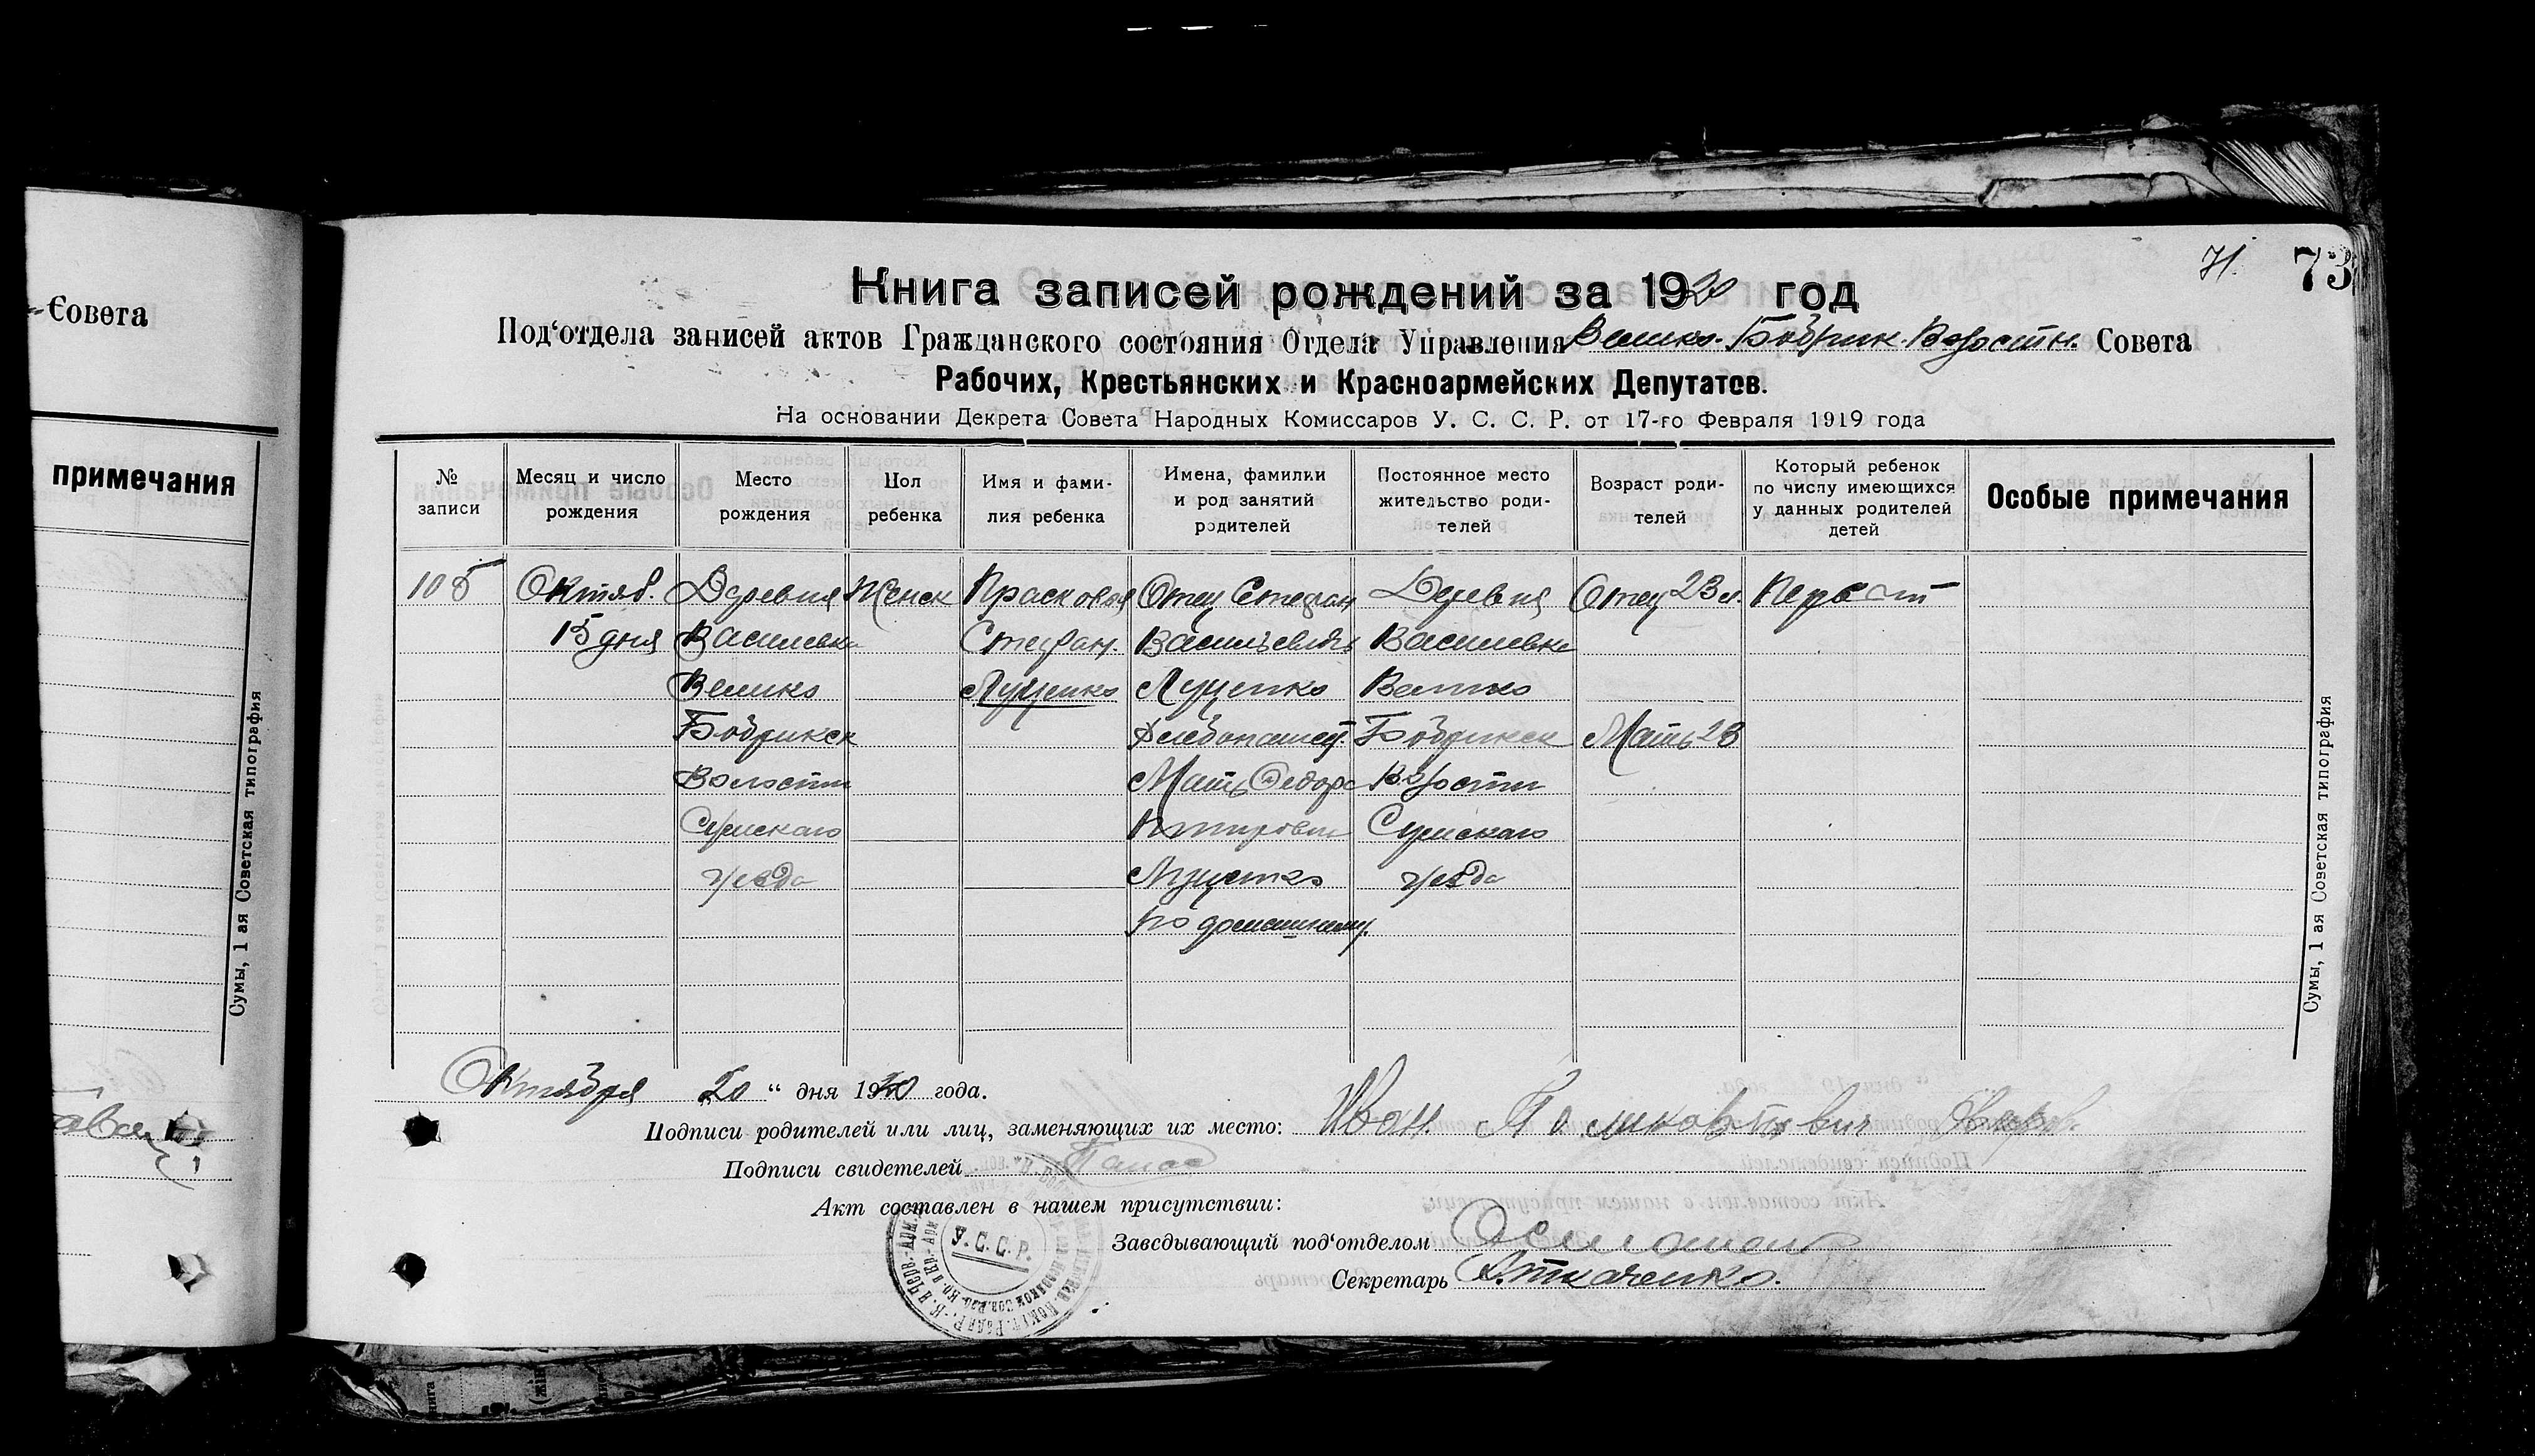 Совета
примечания
Сумы, 1 ая Советская типография
71. 73
Книга записей рождений за 1920 год
Под‘отдела записей актов Гражданского состояния Отдела Управления Велико-Бобрик. Волостн. Совета
Рабочих, Крестьянских и Красноармейских Депутатов.
На основании Декрета Совета Народных Комиссаров У. С. С. Р. от 17-го Февраля 1919 года
№ записи
Месяц и число рождения
Место рождения
Пол ребенка
Имя и фами-
лия ребенка
Имена, фамилии
и род занятий
родителей
Постоянное место
жительство роди-
телей
Возраст роди-
телей
Который ребенок
по числу имеющихся
у данных родителей
детей
Особые примечания
105
Октяб.
15 дня
Деревня
Василевка
Велико
Бобрикск
Волости
Сумскаго
уезда
Женск
Прасковья
Стефан.
Луценко
Отец Стефан
Васильевичь
Луценко
Хлебопашец.
Мать Федора
Луценко
по домашнему.
Деревня
Василевка
Велико
Бобрикск
Волости
Сумскаго
уезда
Отец 23 л.
Мать 23
Первый
Сумы, 1 ая Советская типография
Октября „20“ дня 1920 года.
Подписи родителей или лиц, заменяющих их место: Иван
Подписи свидетелей
Акт составлен в нашем присутствии:
У.С.С.Р.
Заведывающий под‘отделом
Секретарь Ткаченко.